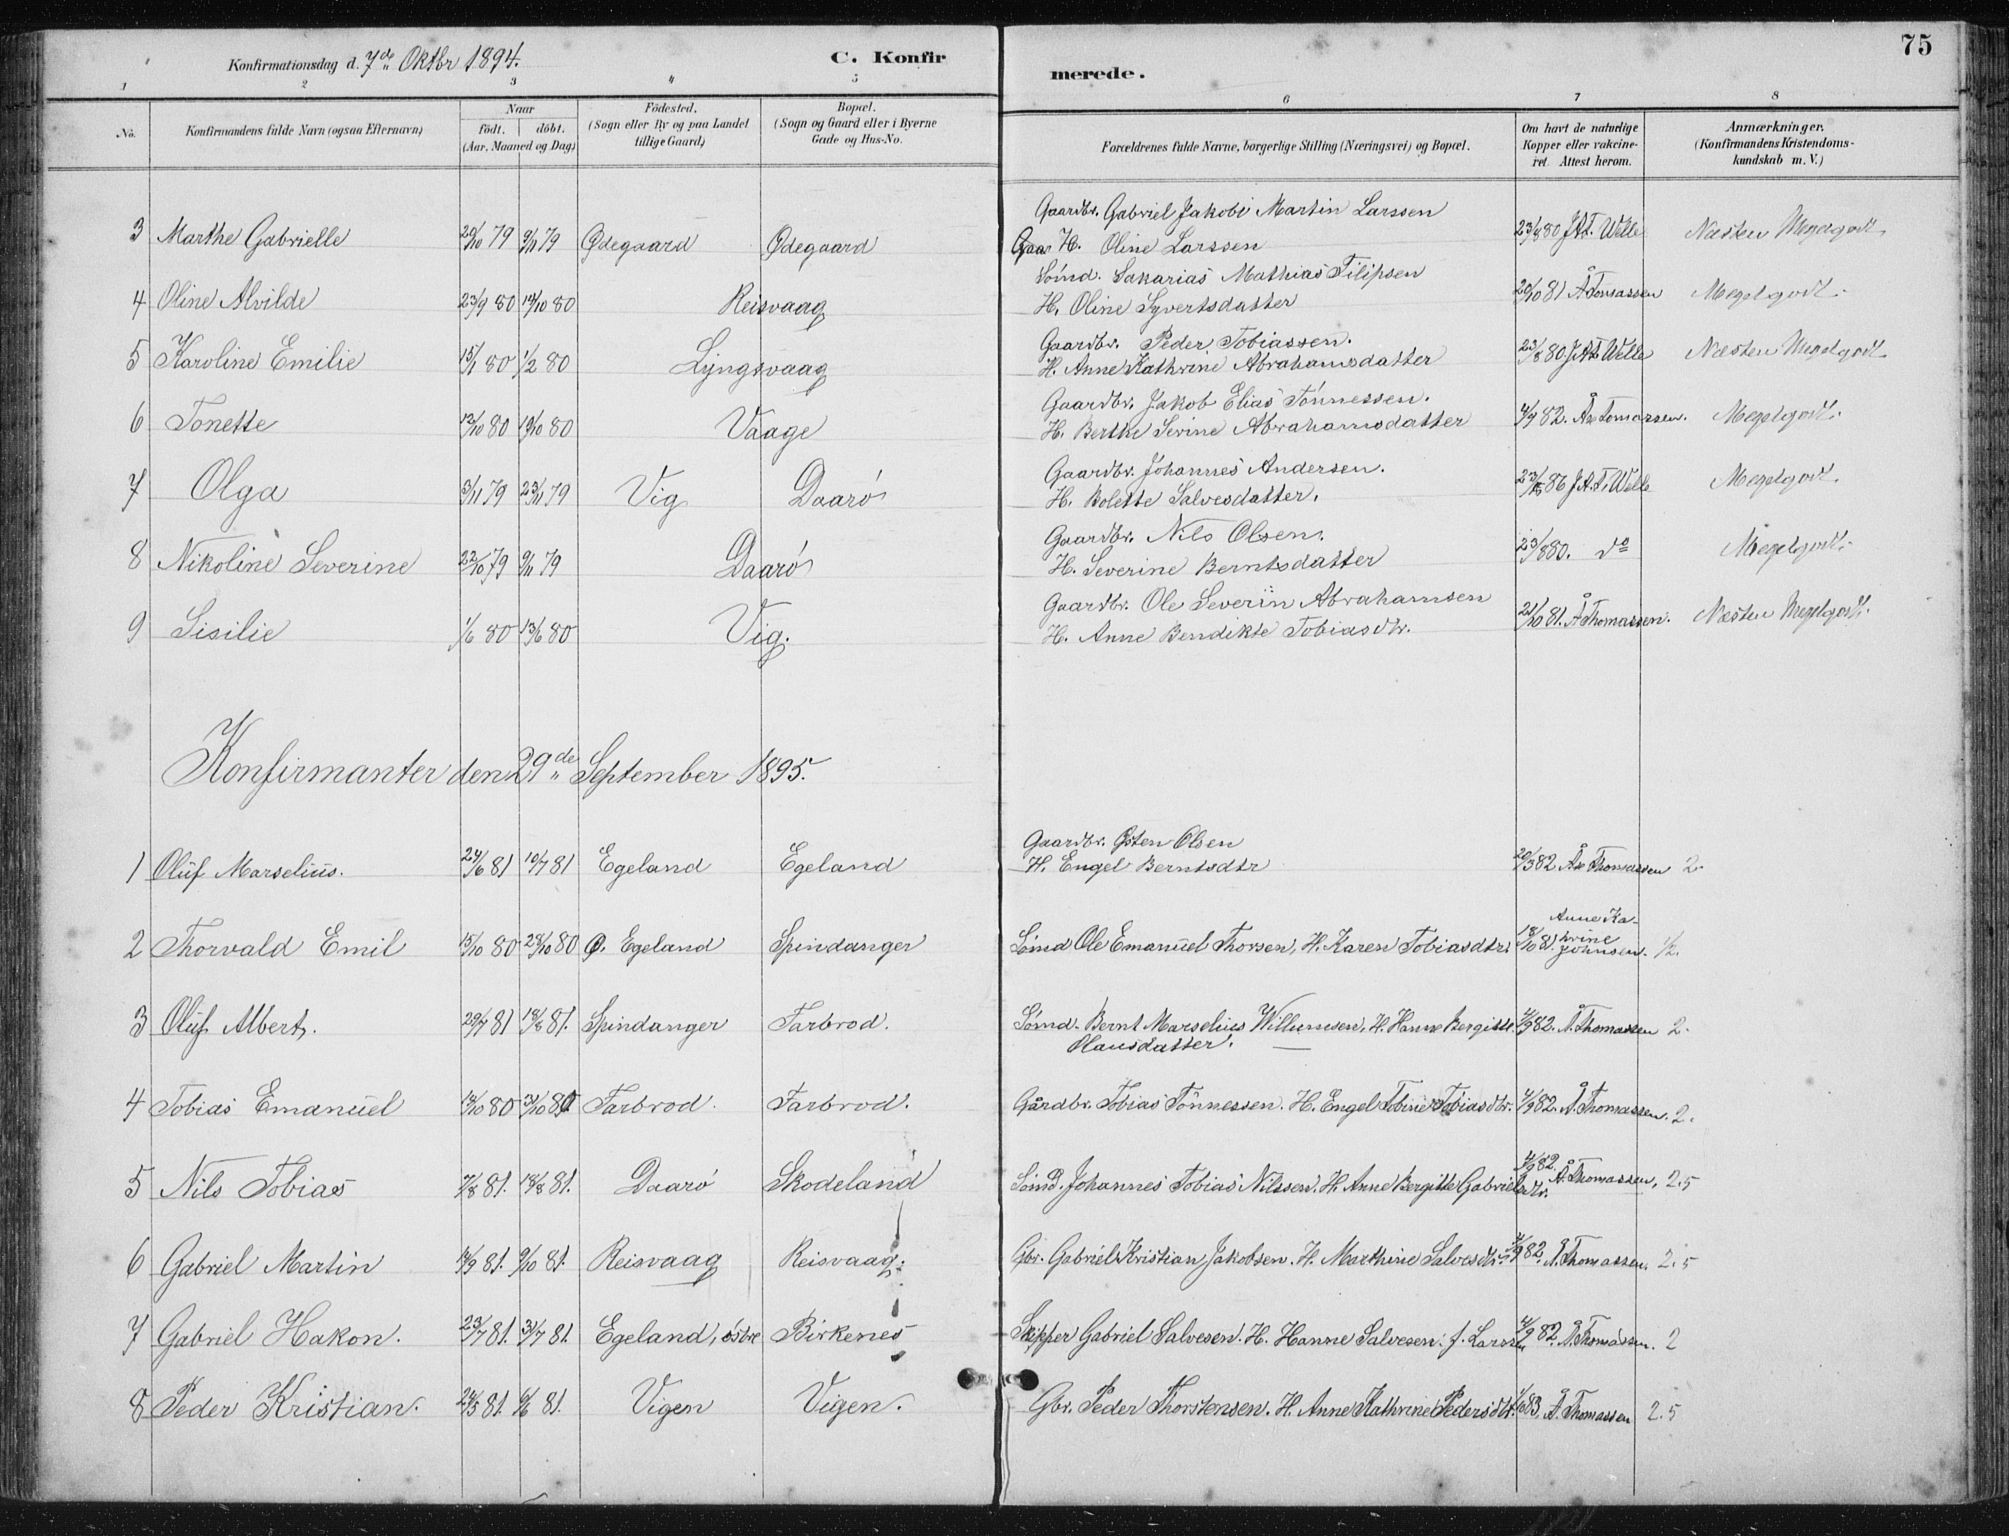 75
Konfirmationsdag d. 7de Oktbr 1894.
C. Konfirmerede.
1 2 3 4 5 6 7 8
No.
Konfirmandens fulde Navn (ogsaa Efternavn)
Naar
födt. döbt.
(Aar, Maaned og Dag)
Födested.
(Sogn eller By og paa Landet
tillige Gaard)
Bopæl.
(Sogn og Gaard eller i Byerne
Gade og Hus-No.
Forældrenes fulde Navne, borgerlige Stilling (Næringsvei) og Bopæl.
Om havt de naturlige
Kopper eller vakcine-
ret. Attest herom.
Anmærkninger.
(Konfirmandens Kristendoms-
kundskab m. V.)
Gaardbr. Gabriel Jakobi Martin Larssen
3 Marthe Gabrielle 20/10 79 9/11 79 Ødegaard Ødegaard H. Oline Larssen 23/8 80 J.A.T. Welle Næsten Megetgodt.
Sömd. Sakarias Mathias Filipsen
4 Oline Alvilde 23/9 80 14/10 80 Reisvaag H. Oline Syvertsdatter 20/10 81 Å Tomassen Megetgodt.
Gaardbr. Peder Tobiassen.
5 Karoline Emilie 15/1 80 1/2 80 Lyngsvaag H. Anne Kathrine Abrahamsdatter 23/8 80 J.A.T. Welle Næsten Megetgodt
Gaardbr. Jakob Elias Tönnessen.
6 Tonette 12/10 80 19/10 80 Vaage H. Berthe Serine Abrahamsdatter 4/9 82. Aa Tomassen. Megetgodt.
Gaardbr. Johannes Andersen.
7 Olga 3/11 79 23/11 79 Vig Daarö H. Bolette Salvesdatter. 23/8 86 J.A.T. Welle Megetgodt.
Gaardbr. Nils Olsen.
8 Nikoline Severine 22/10 79 9/11 79 Daarö H. Severine Berntsdatter 23/8 80. do Megetgodt.
Gaardbr. Ole Severin Abrahamsen
9 Sisilie 1/6 80 13/6 80 Vig. H. Anne Bendikte Tobiasdtr. 21/10 81. Å Thomassen. Næsten Megetgodt.
Konfirmanter den 29de September 1895.
Gaardbr. Østen Olsen
1 Oluf Marselius. 24/6 81 10/7 81 Egeland Egeland H. Engel Berntsdtr 20/3 82 Aa Thomassen 2.
2 Thorvald Emil 15/10 80 24/10 80 Ø. Egeland Spindanger Sömd Ole Emanuel Thorsen, H. Karen Tobiasdtr. 18/10 81. Anne Ka-
trine
Johnsen.
3 Oluf Albert. 29/7 81 18/8 81. Spindanger Farbrod. Sömd. Bernt Marselius Willumsen, H. Hanne Bergitte 4/9 82. Å. Thomassen 2.
Olausdatter.
4 Tobias Emanuel 14/10 80 31/10 80 Farbrod. Farbrod. Gårdbr. Tobias Tönnessen. H. Engel Tobine Tobiasdtr. 4/9 82. Å. Thomassen. 2.
5 Nils Tobias 7/8 81. 18/8 81. Daarö Skodeland Sömd. Johannes Tobias Nilssen. H. Anne Bergitte Gabrielsdtr. 4/9 82. Å. Thomassen. 2.5
6 Gabriel Martin 14/9 81. 9/10 81. Reisvaag Reisvaag. Gbr. Gabriel Kristian Jakobsen. H. Marthine Salvesdtr. 4/9 82. Å. Thomassen. 2.5
7 Gabriel Hakon. 23/7 81. 31/7 81. Egeland, östre Birkenes Skipper Gabriel Salvesen. H. Hanne Salvesen. f. Larssen 4/9 82. Å. Thomassen. 2
8 Peder Kristian. 24/5 81. 6/6 81. Vigen Vigen. Gbr. Peder Thorstensen. H. Anne Kathrine Pedersdtr. 1/6 83. Å. Thomassen 2.5